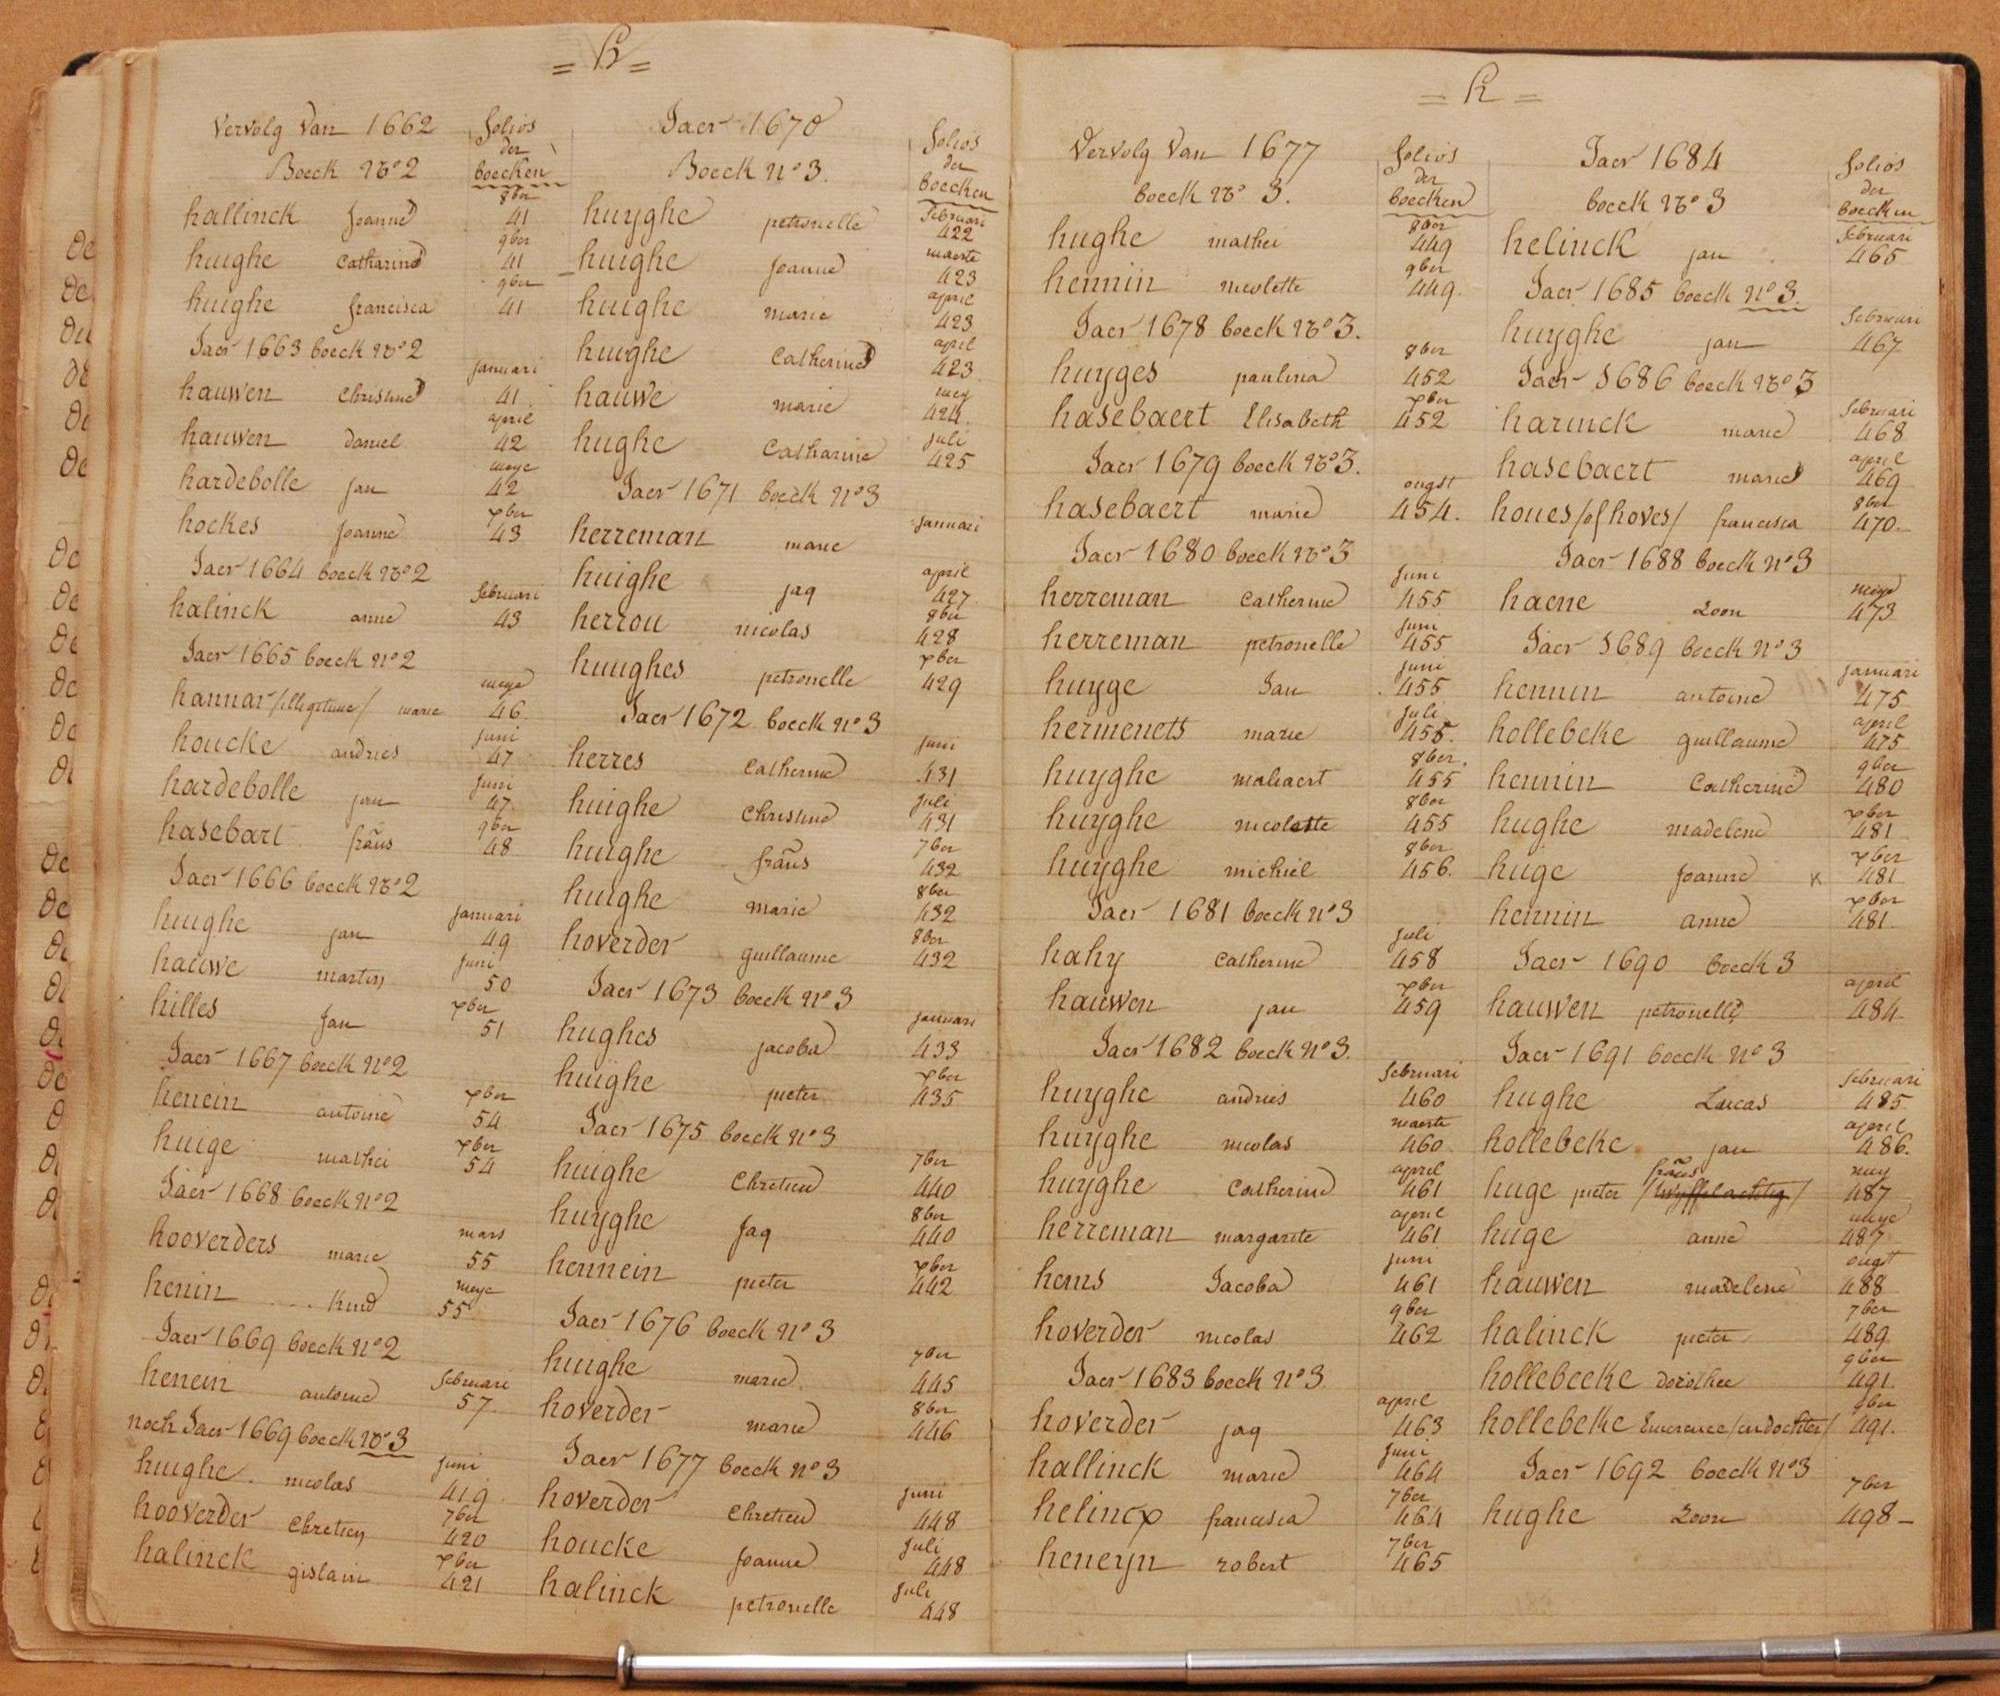 = H =
Vervolg Van 1662
folios
der
boecken
Boeck No 2
8ber
hallinck Joanne 41
9ber
huighe Catharine 41
9ber
huighe francisca 41
Jaer 1663 boeck No 2
januari
hauwen Christine 41
april
hauwen daniel 42
meye
hardebolle jan 42
xber
hockes Joanne 43
Jaer 1664 boeck No 2
februari
halinck anne 43
Jaer 1665 boeck No 2
meye
hannar /illegitime/ marie 46
juni
houcke andries 47
juni
hardebolle jan 47
9ber
hasebart frans 48
Jaer 1666 boeck No 2
januari
huighe jan 49
juni
hauwe martin 50
xber
hilles Jan 51
Jaer 1667 boeck No 2
xber
henein antoine 54
xber
huige mathei 54
Jaer 1668 boeck No 2
mars
hooverders marie 55
meye
henin .... Kind 55
Jaer 1669 boeck No 2
februari
henein antoine 57
noch Jaer 1669 boeck No 3
juni
huighe nicolas 419
7ber
hooverder Chretien 420
xber
halinck gislain 421
Jaer 1670
folios
der
boecken
Boeck No 3.
februari
huyghe petronelle 422
maerte
huighe Joanne 423
april
huighe marie 423
april
huighe Catherine 423
mey
hauwe marie 424
juli
hughe Catharine 425
Jaer 1671 boeck No 3
januari
herreman marie
april
huighe jaq 427
8ber
herrou nicolas 428
xber
huughes petronelle 429
Jaer 1672 boeck No 3
juni
herres Catherine 431
juli
huighe Christine 431
7ber
huighe frans 432
8ber
huighe marie 432
8ber
hoverder guillaume 432
Jaer 1673 boeck No 3
januari
hughes jacoba 433
xber
huighe pieter 435
Jaer 1675 boeck No 3
7ber
huighe Chretien 440
8ber
huyghe Jaq 440
xber
hennein pieter 442
Jaer 1676 boeck No 3
7ber
huighe marie 445
8ber
hoverder marie 446
Jaer 1677 boeck No 3
juni
hoverder Chretien 448
juli
houcke Joanne 448
juli
halinck petronelle 448
= H =
Vervolg Van 1677
folios
der
boecken
boeck No 3.
8ber
hughe mathei 449
9ber
hennin nicolette 449.
Jaer 1678 boeck No 3.
8ber
huyges paulina 452
xber
hasebaert Elisabeth 452
Jaer 1679 boeck No 3.
ougst
hasebaert marie 454.
Jaer 1680 boeck No 3
juni
herreman Catherine 455
juni
herreman petronelle 455
juni
huyge Jan 455
juli
hermenets marie 455.
8ber.
huyghe maliaert 455
8ber
huyghe nicolette 455
8ber
huyghe michiel 456.
Jaer 1681 boeck No 3
juli
hahy Catherine 458
xber
hauwen jan 459
Jaer 1682 boeck No 3.
februari
huyghe andries 460
maerte
huyghe nicolas 460
april
huyghe Catherine 461
april
herreman margarite 461
juni
hems Jacoba 461
9ber
hoverder nicolas 462
Jaer 1683 boeck No 3
april
hoverder jaq 463
juni
hallinck marie 464
7ber
helincx francisca 464
7ber
heneyn robert 465
Jaer 1684
folios
der
boecken
boeck No 3
februari
helinck jan 465
Jaer 1685 boeck No 3.
februari
huyghe jan 467
Jaer 1686 boeck No 3
februari
harinck marie 468
april
hasebaert marie 469
8ber
houes /of hoves/ francisca 470
Jaer 1688 boeck No 3
meye
haene Loon 473
Jaer 1689 boeck No 3
januari
hennin antoine 475
april
hollebeke guillaume 475
9ber
hennin Catherine 480
xber
hughe madelene 481
xber
huge Joanne x 481
xber
hennin anne 481.
Jaer 1690 boeck 3
april
hauwen petronelle 484
Jaer 1691 boeck No 3
februari
hughe Lucas 485
april
hollebeke jan 486.
frans mey
huge pieter 487
meye
huge anne 487
ougst
hauwen madelene 488
7ber
halinck pieter 489
9ber
hollebeeke dorothee 491
9ber
hollebeke Emerence /en dochter/ 491.
Jaer 1692 boeck No 3
7ber
hughe Loon 498